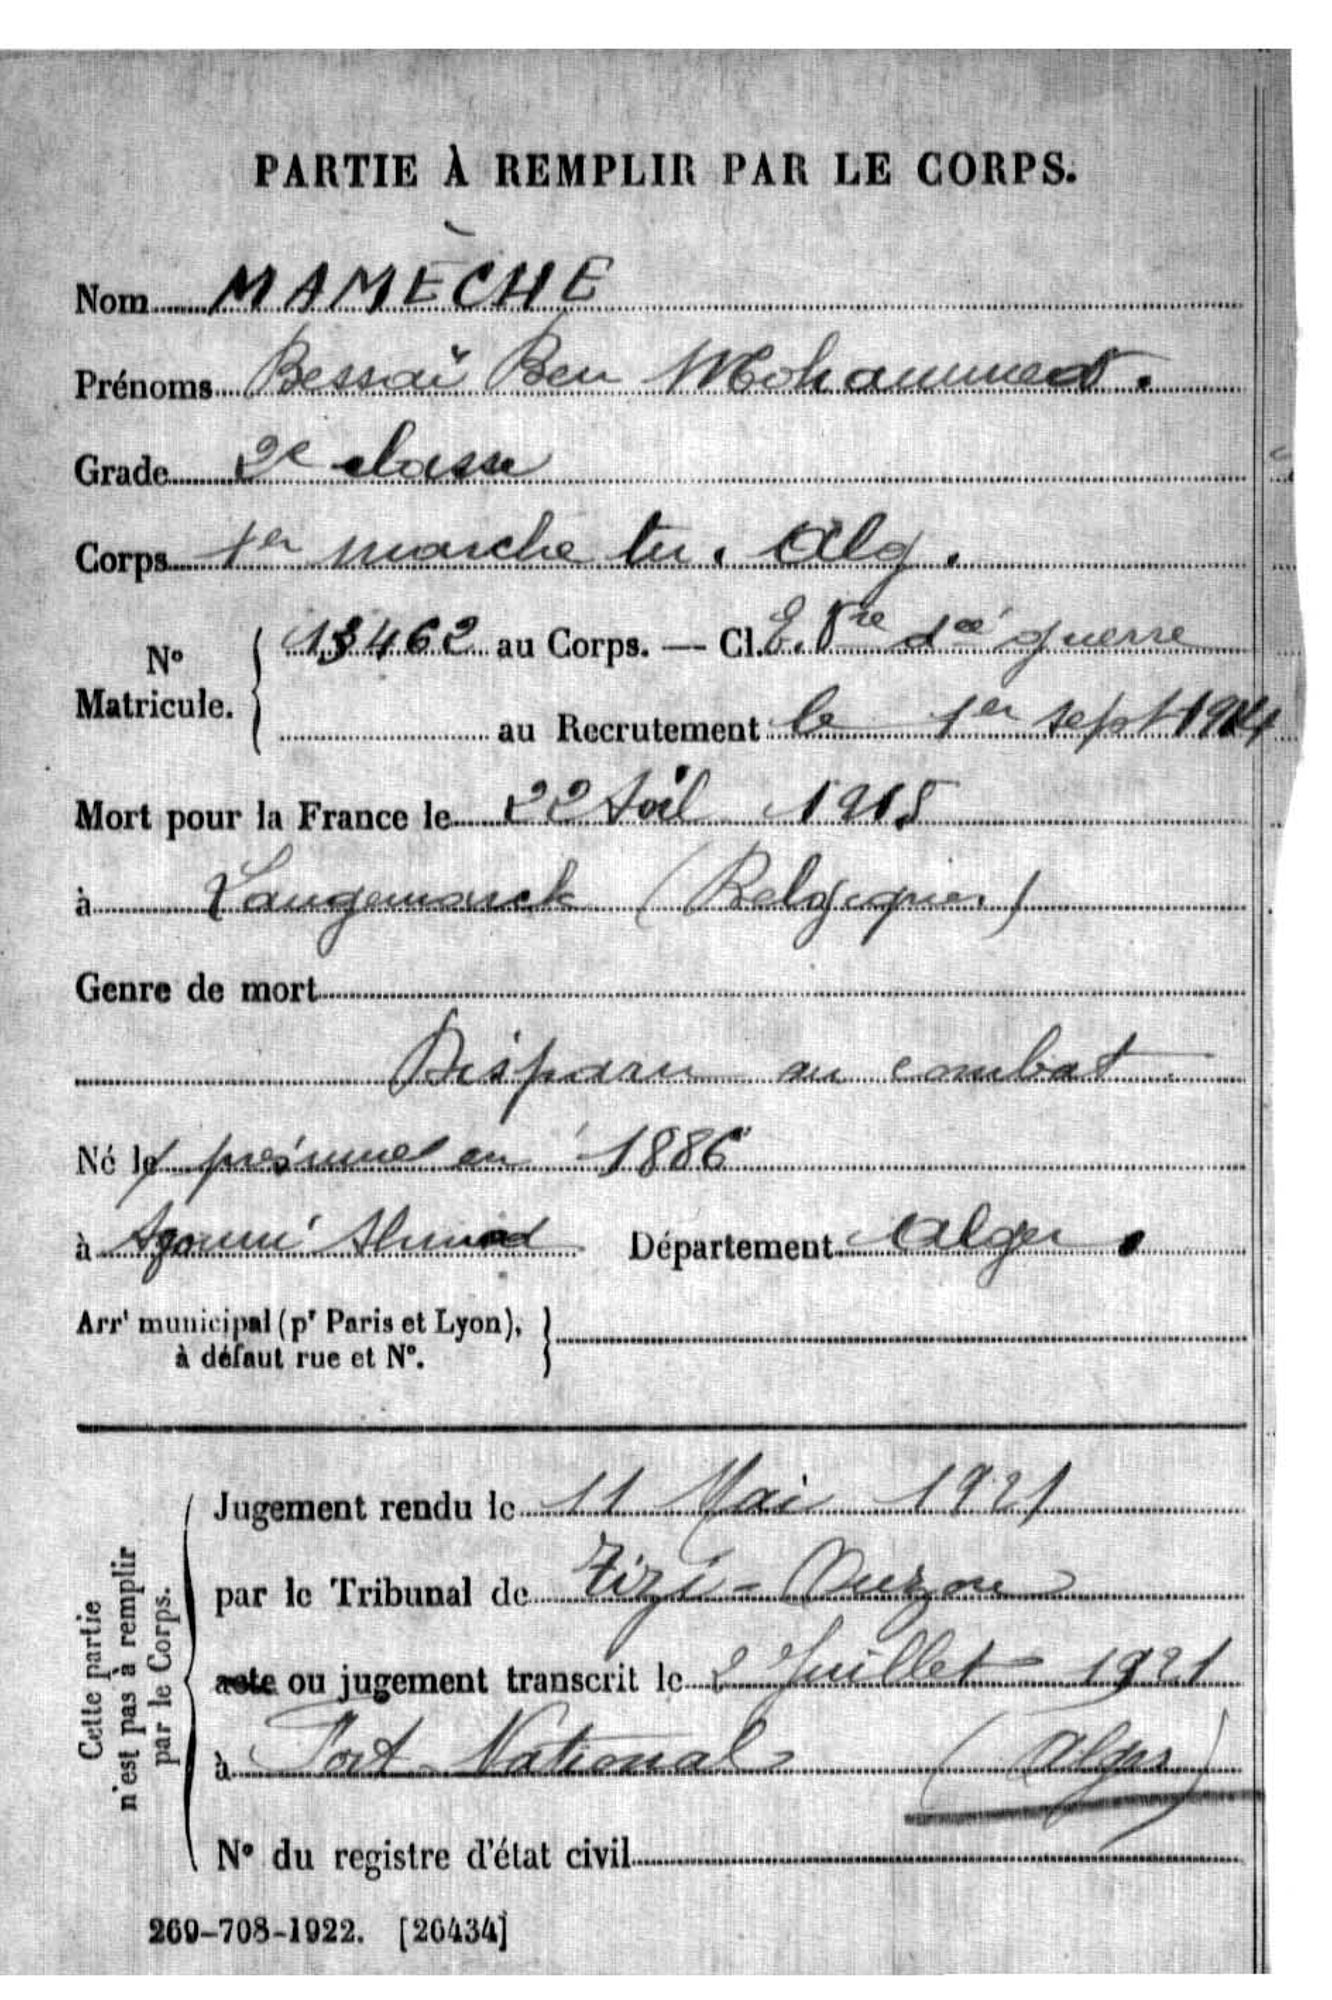 PARTIE À REMPLIR PAR LE CORPS.
Nom MAMÈCHE
Prénoms Bessaï Ben Mohammed.
Grade 2e classe
Corps 1er marche tir. Alg.
N° Matricule. 13462 au Corps. — Cl. E. Vre dée guerre
au Recrutement le 1er sept 1914
Mort pour la France le 22 Avril 1915
à Langemarck (Belgique)
Genre de mort
Disparu au combat
Né le présumé en 1886
à Agouni Ahmed Département Alger.
Arrt municipal (pr Paris et Lyon),
à défaut rue et N°.
Cette partie
n'est pas à remplir
par le Corps.
Jugement rendu le 11 Mai 1921
par le Tribunal de Tizi-Ouzou
acte ou jugement transcrit le 2 Juillet 1921
à Fort-National (Alger)
N° du registre d'état civil
269-708-1922. [26434]